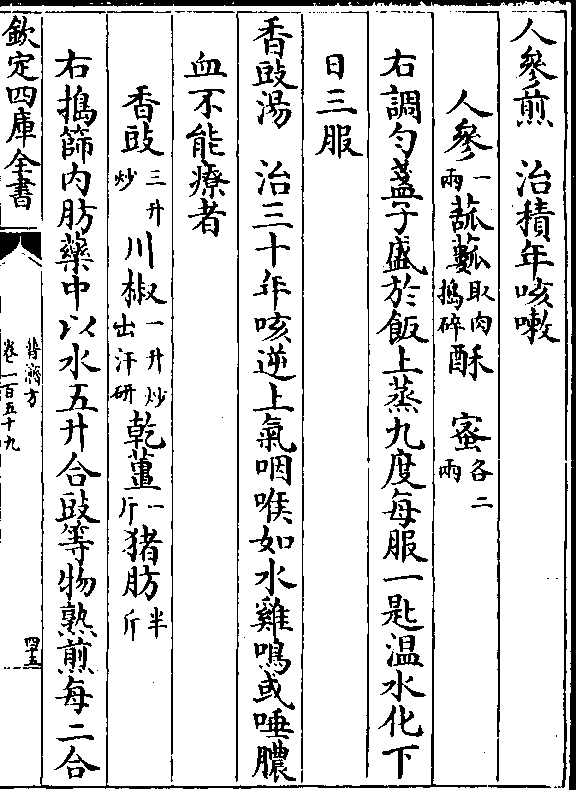 人參煎　治積年咳嗽
人參一兩　蓏蔞取肉搗碎　酥　蜜各二兩
右調勻盞子盛於飯上蒸九度每服一匙温水化下
日三服
香豉湯　治三十年咳逆上氣咽喉如水雞鳴或唾膿
血不能療者
香豉三升炒　川椒一升炒出汗研　乾薑一斤　猪肪半斤
右搗篩内肪藥中以水五升合豉等物熟煎每二合
欽定四庫全書
普濟方
卷一百五十九
四十五